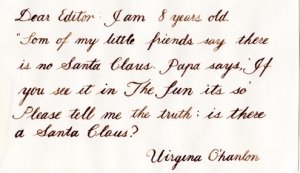 Dear Editor: I am 8 years old.
"Som of my little friends say there
is no Santa Claus. Papa says, 'If
you see it in The Sun its so'
Please tell me the truth: is there
a Santa Claus?
Virgina O'hanlon